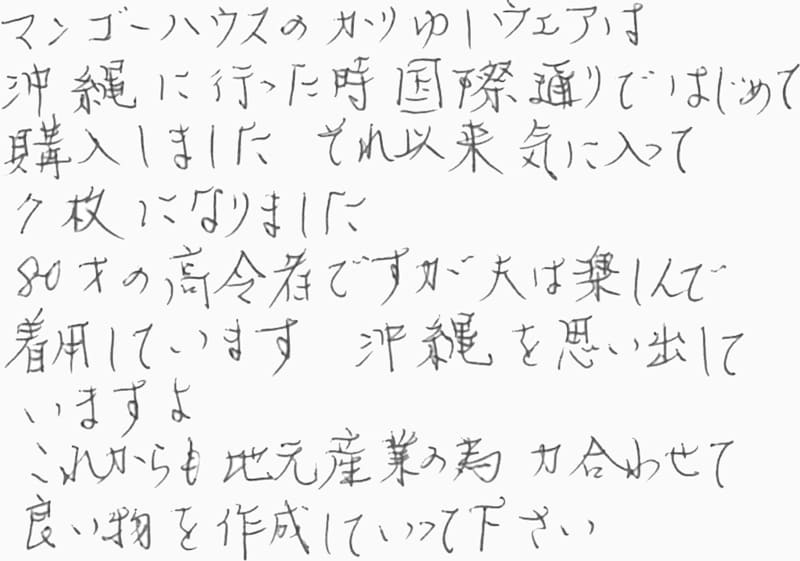 マンゴーハウスのかりゆしウェアは
沖縄に行った時国際通りではじめて
購入しました それ以来気に入って
7枚になりました
80才の高令者ですが夫は楽しんで
着用しています 沖縄を思い出して
いますよ
これからも地元産業の為力合わせて
良い物を作成していって下さい